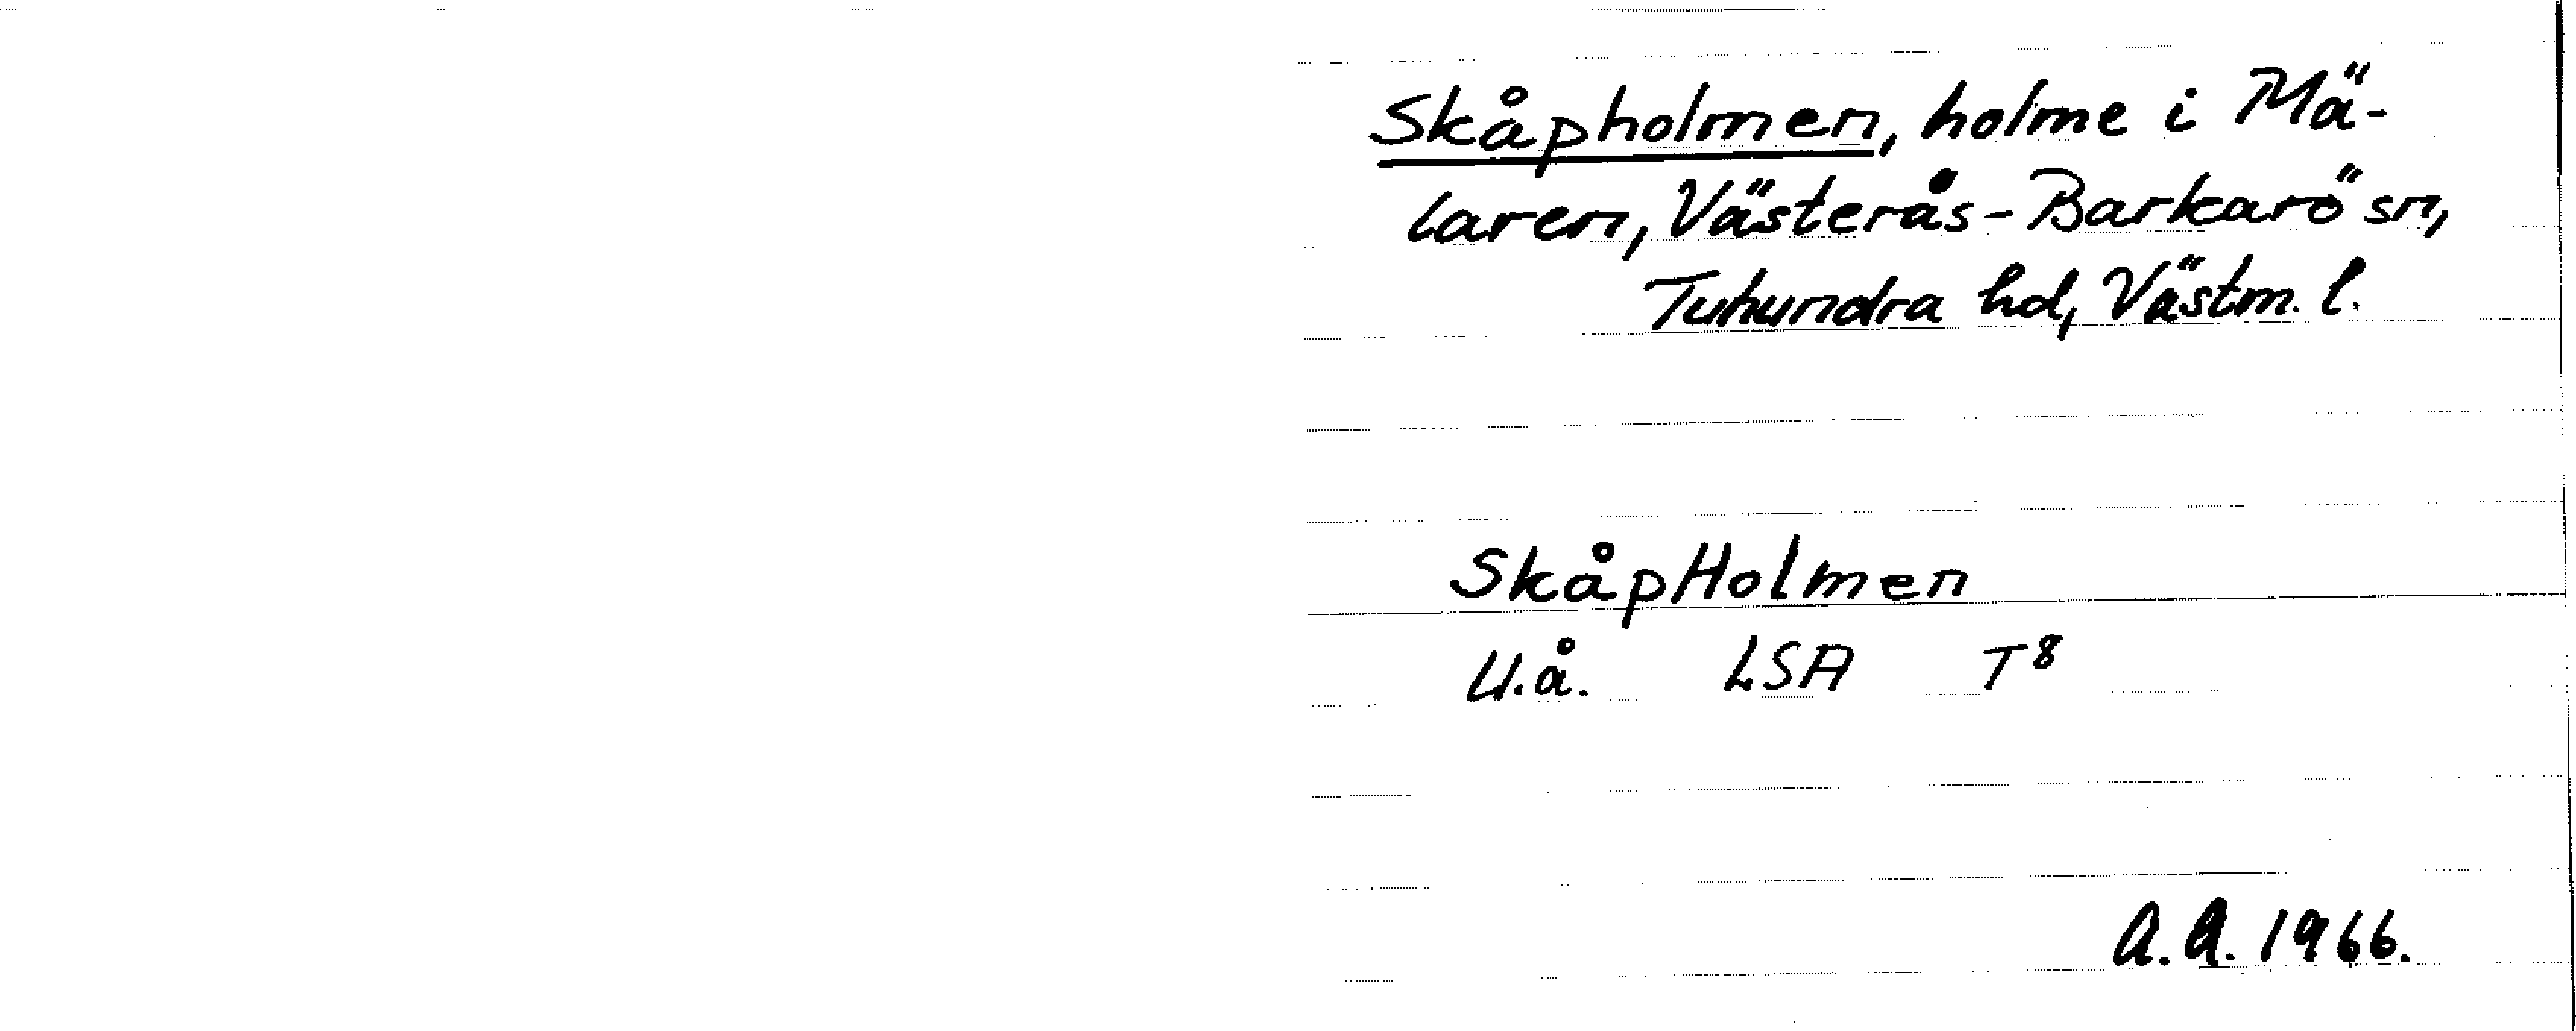 Skåpholmen, holme i Mä-
laren, Västerås-Barkarö sn,
Tuhundra hd, Västm. l.
SkåpHolmen
U.å. LSA T8
A.A. 1966.